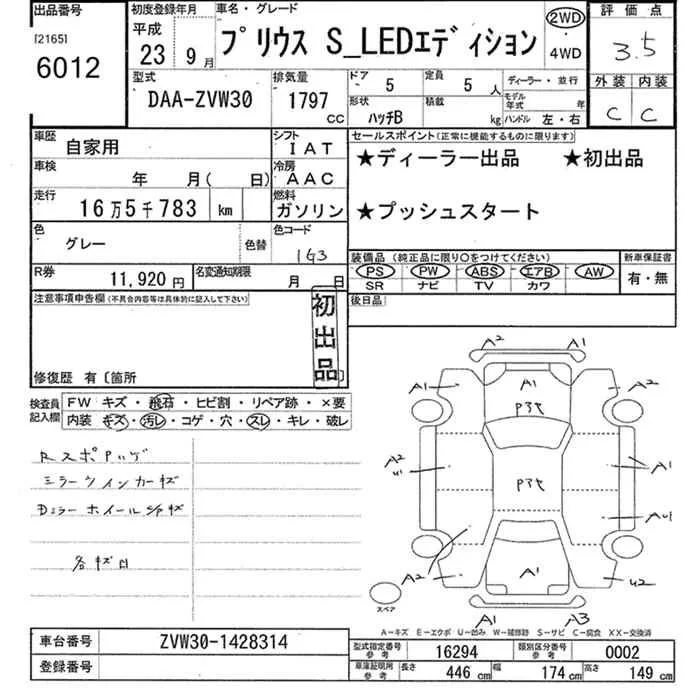 出品番号
[2165]
6012
初度登録年月
平成
23 9月
車名・グレード
プリウス S_LEDエディション
2WD
・
4WD
評価点
3.5
外装 内装
C C
型式
DAA-ZVW30
排気量
1797
CC
ドア
5
定員
5 人
ディーラー・並行
モデル年式 年
形状
ハッチB
積載
kg
ハンドル 左・右
車歴
自家用
シフト
IAT
車検
年 月( 日)
冷房
AAC
走行
16万5千783 km
燃料
ガソリン
色
グレー
色替
色コード
1G3
R券
11,920 円
名変通知期限
月 日
セールスポイント(正常に機能するものに限ります)
★ディーラー出品 ★初出品
★プッシュスタート
装備品(純正品に限り○をつけてください)
PS PW ABS エアB AW
SR ナビ TV カワ
新車保証書
有・無
後日品
注意事項申告欄(不具合内容等は具体的に記入して下さい)
初出品
修復歴 有〔箇所
検査員記入欄
FW キズ・飛石・ヒビ割・リペア跡・×要
内装 キズ・汚レ・コゲ・穴・スレ・キレ・破レ
ミラーウインカーキズ
各キズ凹
A2 A1
A1 A1 A2
Pスモ
A2
U1
A1
Pスモ
AU1
A2 A1 U2
スペア
A1 A3
A-キズ E-エクボ U-凹み W-補修跡 S-サビ C-腐食 XX-交換済
車台番号
ZVW30-1428314
登録番号
型式指定番号参考
16294
類別区分番号参考
0002
車庫証明用参考
長さ 446 cm 幅 174 cm 高さ 149 cm